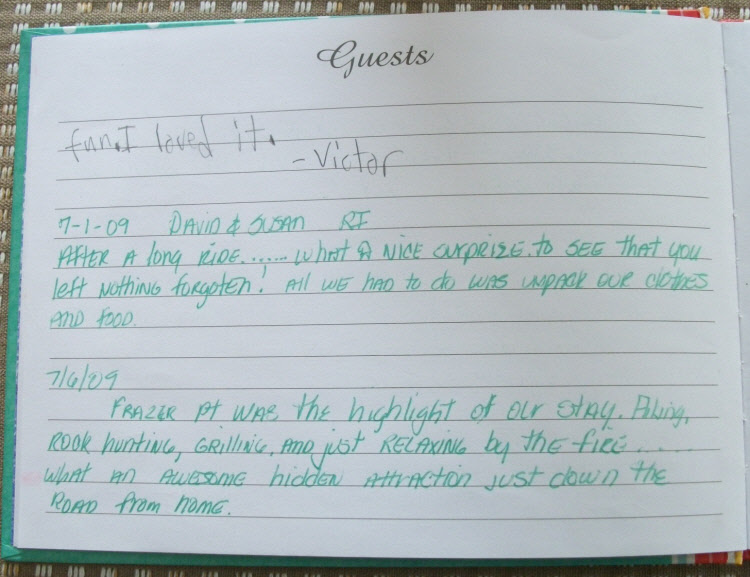 Guests
fun. I loved it.
- Victor
7-1-09 DAVID & SUSAN RI
AFTER A long RIDE...... What A NICE SURPRIZE. to SEE that you
left NOTHING forgoten! All WE HAD to do WAS UNPACK OUR clothes
AND FOOD.
7/6/09
FRAZER Pt WAS the highlight of OUR STAY. Biking,
ROCK hunting, GRILLING, AND just RELAXING by THE fire.....
what AN AWESOME hidden Attraction just down the
ROAD from home.